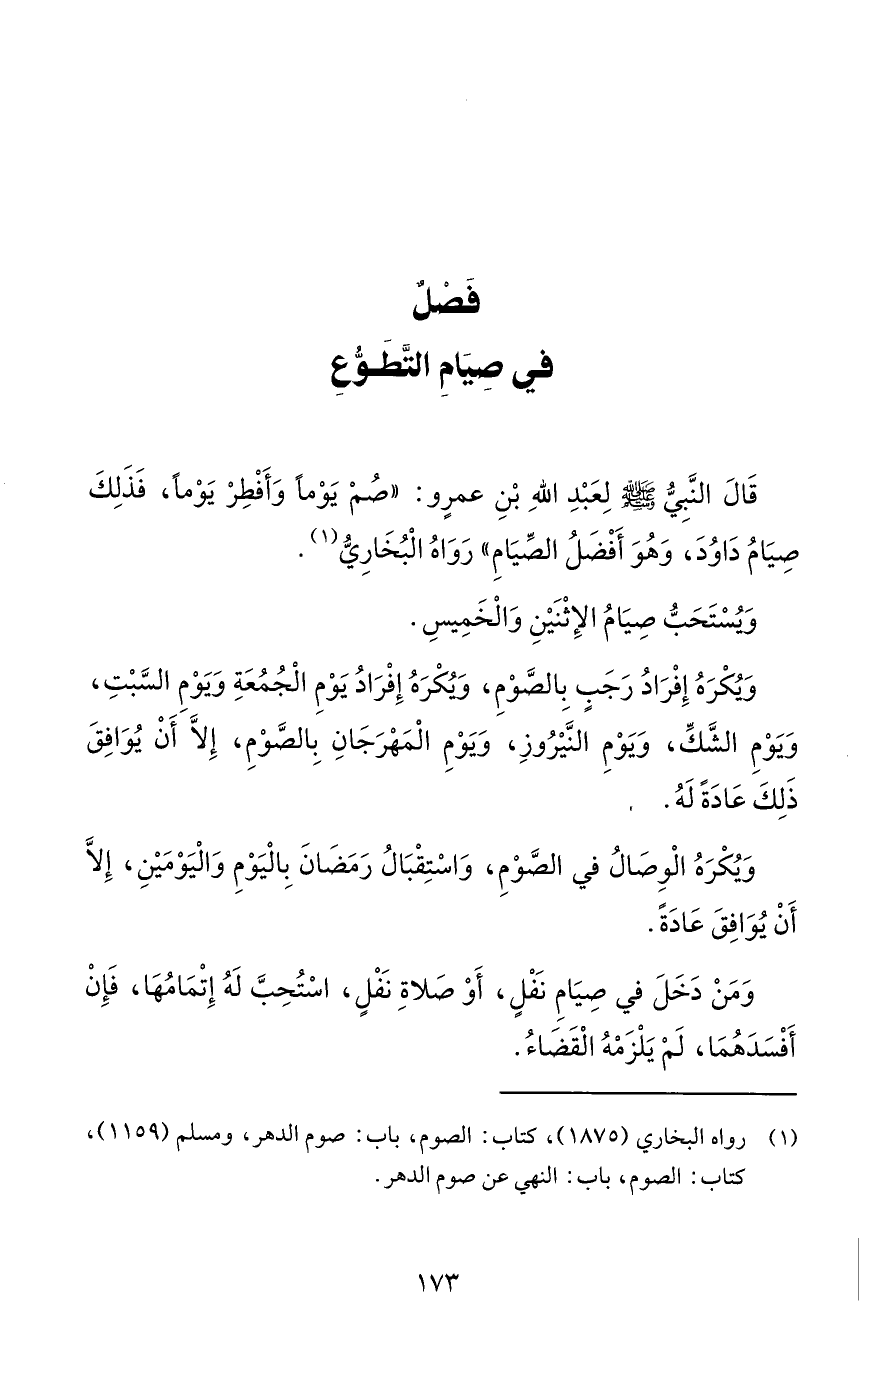 فَصْلٌ
في صِيَامِ التَّطَوُّعِ
قَالَ النَّبِيُّ ﷺ لِعَبْدِ اللهِ بْنِ عمرٍو: «صُمْ يَوْماً وَأَفْطِرْ يَوْماً، فَذَلِكَ
صِيَامُ دَاوُدَ، وَهُوَ أَفْضَلُ الصِّيَامِ» رَوَاهُ الْبُخَارِيُّ(١).
وَيُسْتَحَبُّ صِيَامُ الإِثْنَيْنِ وَالْخَمِيسِ.
وَيُكْرَهُ إِفْرَادُ رَجَبٍ بِالصَّوْمِ، وَيُكْرَهُ إِفْرَادُ يَوْمِ الْجُمُعَةِ وَيَوْمِ السَّبْتِ،
وَيَوْمِ الشَّكِّ، وَيَوْمِ النَّيْرُوزِ، وَيَوْمِ الْمَهْرَجَانِ بِالصَّوْمِ، إِلاَّ أَنْ يُوَافِقَ
ذَلِكَ عَادَةً لَهُ.
وَيُكْرَهُ الْوِصَالُ في الصَّوْمِ، وَاسْتِقْبَالُ رَمَضَانَ بِالْيَوْمِ وَالْيَوْمَيْنِ، إِلاَّ
أَنْ يُوَافِقَ عَادَةً.
وَمَنْ دَخَلَ في صِيَامِ نَفْلٍ، أَوْ صَلاةِ نَفْلٍ، اسْتُحِبَّ لَهُ إِتْمَامُهَا، فَإِنْ
أَفْسَدَهُمَا، لَمْ يَلْزَمْهُ الْقَضَاءُ.
(١) رواه البخاري (١٨٧٥)، كتاب: الصوم، باب: صوم الدهر، ومسلم (١١٥٩)،
كتاب: الصوم، باب: النهي عن صوم الدهر.
١٧٣